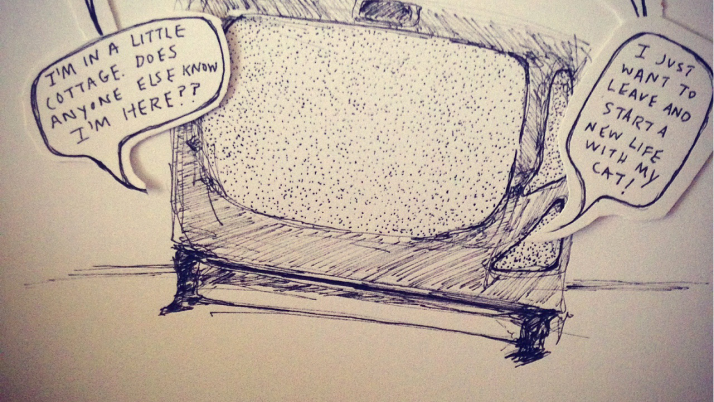 I'M IN A LITTLE
COTTAGE. DOES
ANYONE ELSE KNOW
I'M HERE??
I JUST
WANT TO
LEAVE AND
START A
NEW LIFE
WITH MY
CAT!